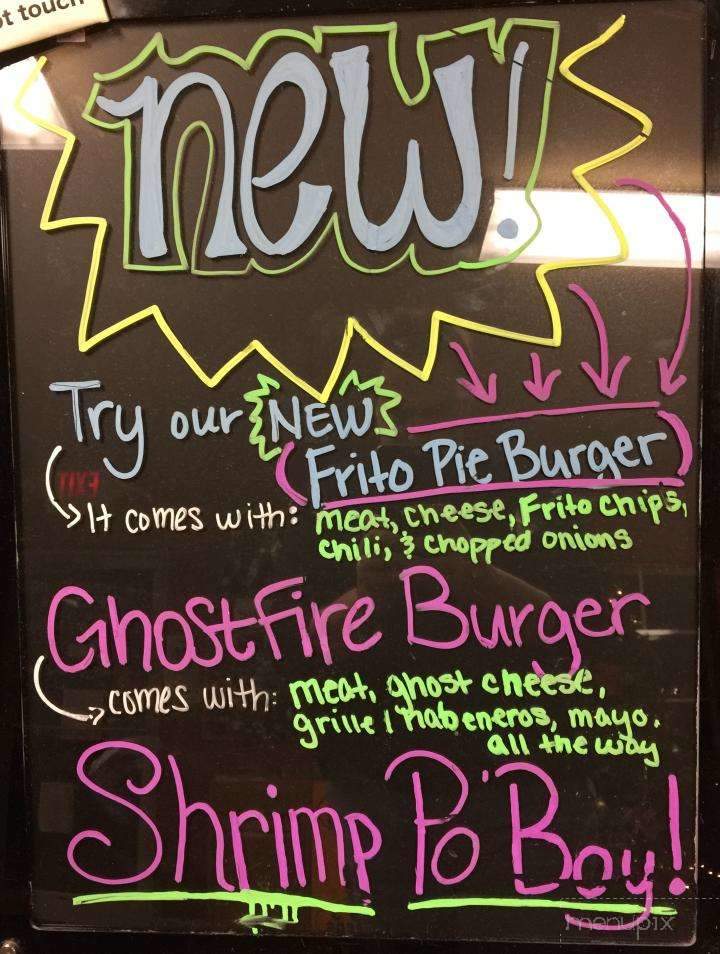 ot touch
new!
Try our NEW
Frito Pie Burger
It comes with: meat, cheese, Frito chips,
chili, & chopped onions
Ghostfire Burger
comes with: meat, ghost cheese,
grille habeneros, mayo.
all the way
Shrimp Po'Boy!
menupix